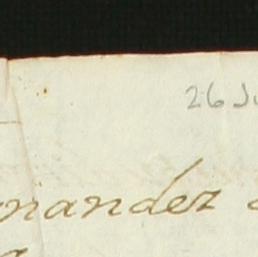 26 Ju
nandez